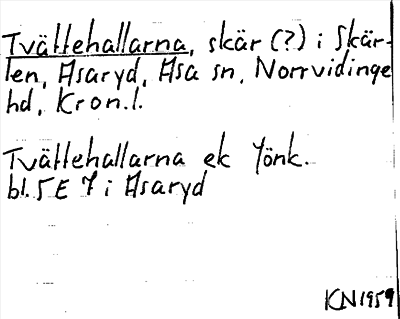 Tvättehallarna, skär (?) i Skär-
len, Asaryd, Asa sn, Norrvidinge
hd, Kron. l.
Tvättehallarna ek Jönk.
bl. 5 E 7 i Asaryd
KN 1959